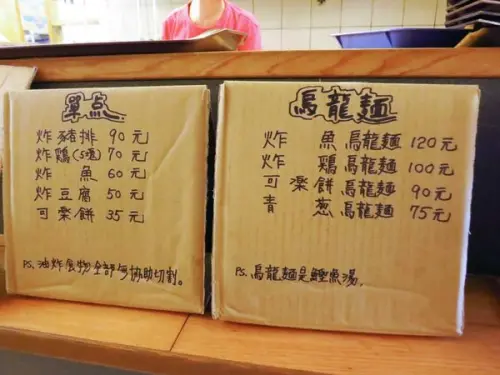 單点
炸豬排 90元
炸鶏(5塊) 70元
炸魚 60元
炸豆腐 50元
可樂餅 35元
PS. 油炸食物全部可協助切割。
烏龍麵
炸魚烏龍麵 120元
炸鶏烏龍麵 100元
可樂餅烏龍麵 90元
青葱烏龍麵 75元
PS. 烏龍麵是鰹魚湯。